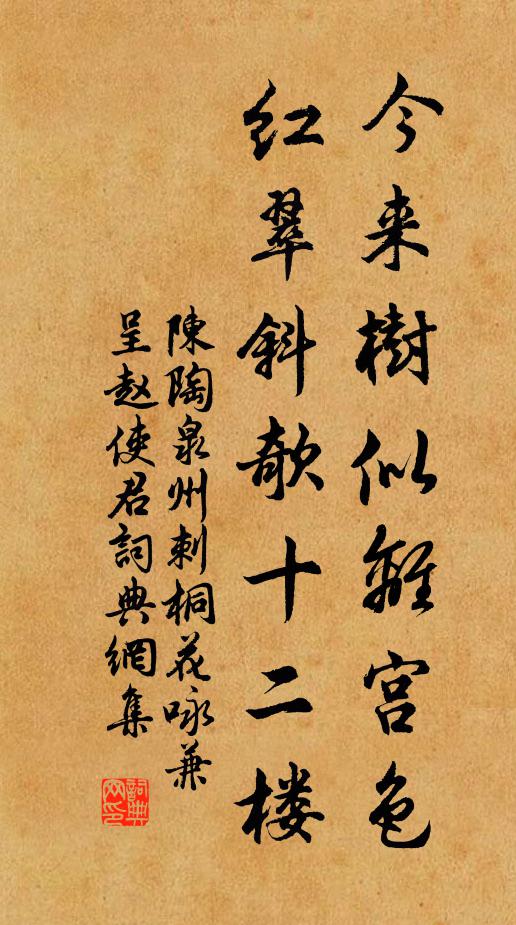 今来樹似離宫色
红翠斜欹十二楼
陳陶泉州刺桐花咏兼
呈赵使君詞典網集
詞典
网印